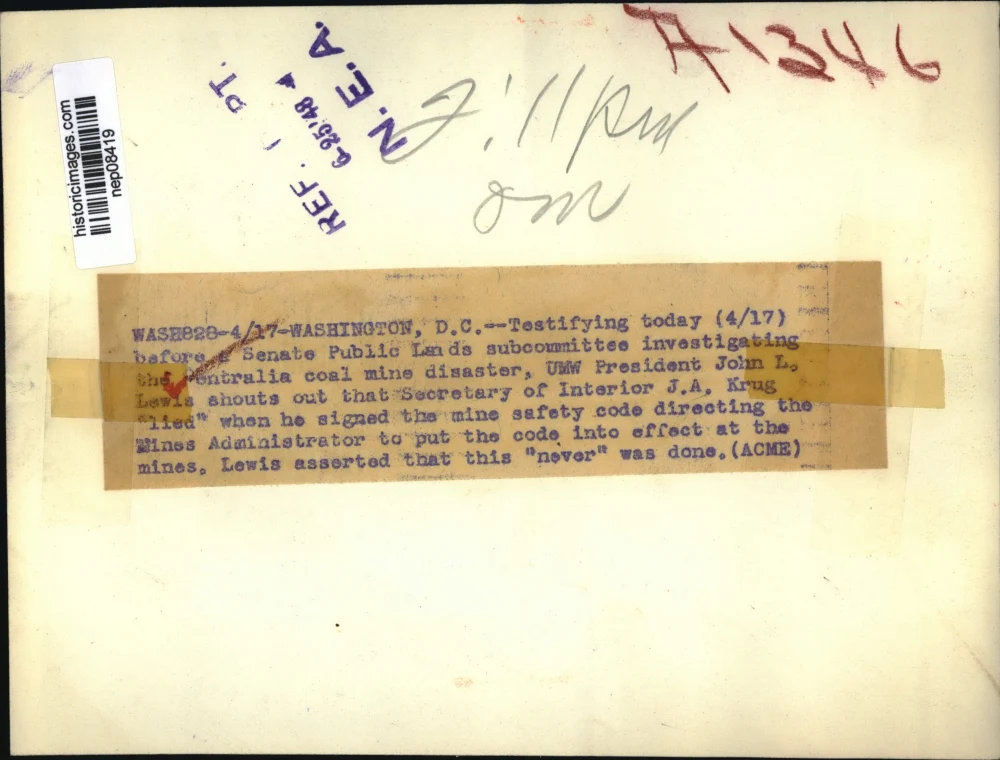 A1346
historicimages.com
nep08419
REF. DPT.
6-25'48
N. E. A.
2:11pm
WASH828-4/17-WASHINGTON, D.C.--Testifying today (4/17)
before a Senate Public Lands subcommittee investigating
the Centralia coal mine disaster, UMW President John L.
Lewis shouts out that Secretary of Interior J.A. Krug
"lied" when he signed the mine safety code directing the
Mines Administrator to put the code into effect at the
mines. Lewis asserted that this "never" was done.(ACME)